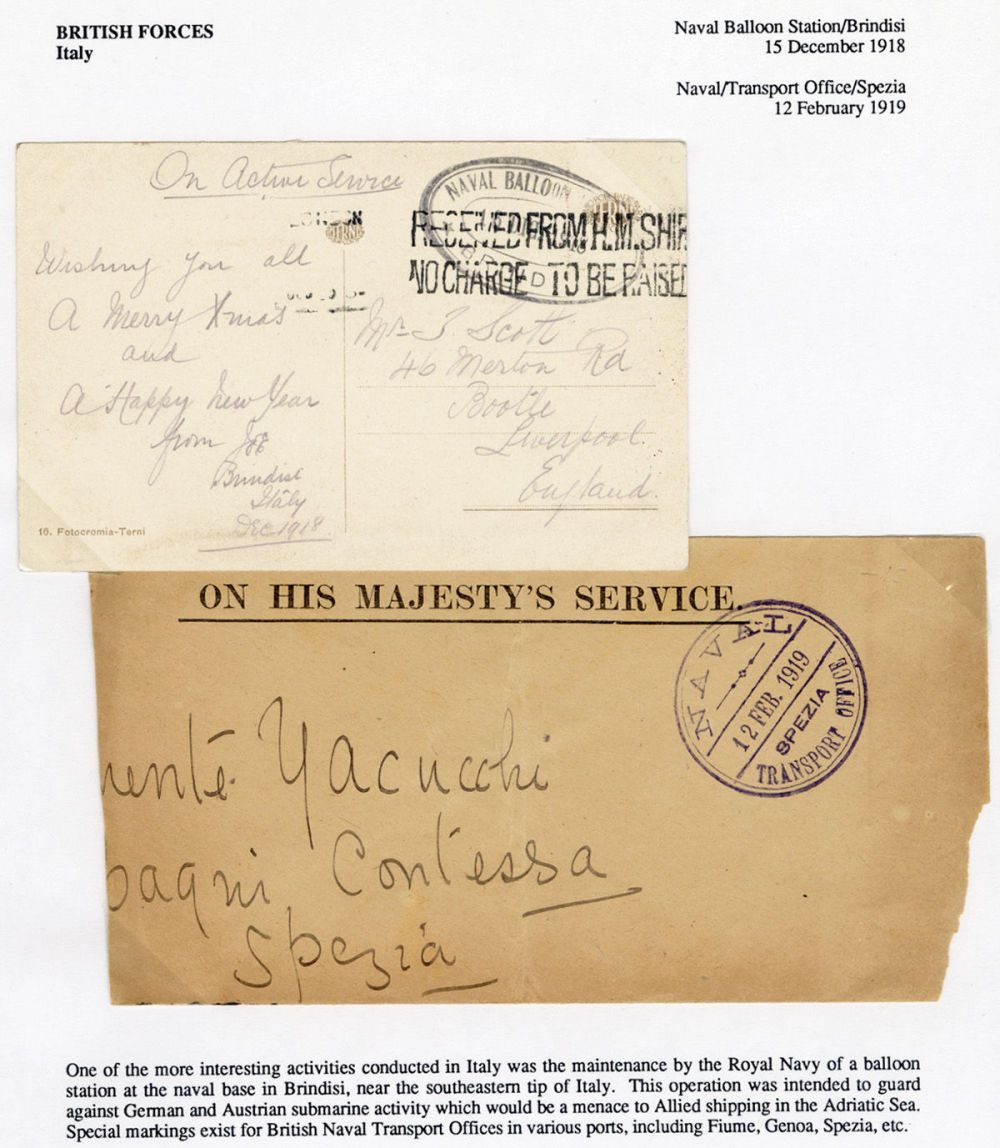 BRITISH FORCES
Italy
Naval Balloon Station/Brindisi
15 December 1918
Naval/Transport Office/Spezia
12 February 1919
On Active Service
NAVAL BALLOON
RECEIVED FROM H.M. SHIP
NO CHARGE TO BE RAISED
Wishing you all
A Merry Xmas
and
A Happy New Year
from Joe
Brindisi
Italy
Dec 1918
Mr J Scott
46 Merton Rd
Bootle
Liverpool
England.
16. Fotocromia-Terni
ON HIS MAJESTY'S SERVICE.
NAVAL
12 FEB. 1919
SPEZIA
TRANSPORT OFFICE
Yacucchi
Contessa
Spezia
One of the more interesting activities conducted in Italy was the maintenance by the Royal Navy of a balloon
station at the naval base in Brindisi, near the southeastern tip of Italy. This operation was intended to guard
against German and Austrian submarine activity which would be a menace to Allied shipping in the Adriatic Sea.
Special markings exist for British Naval Transport Offices in various ports, including Fiume, Genoa, Spezia, etc.